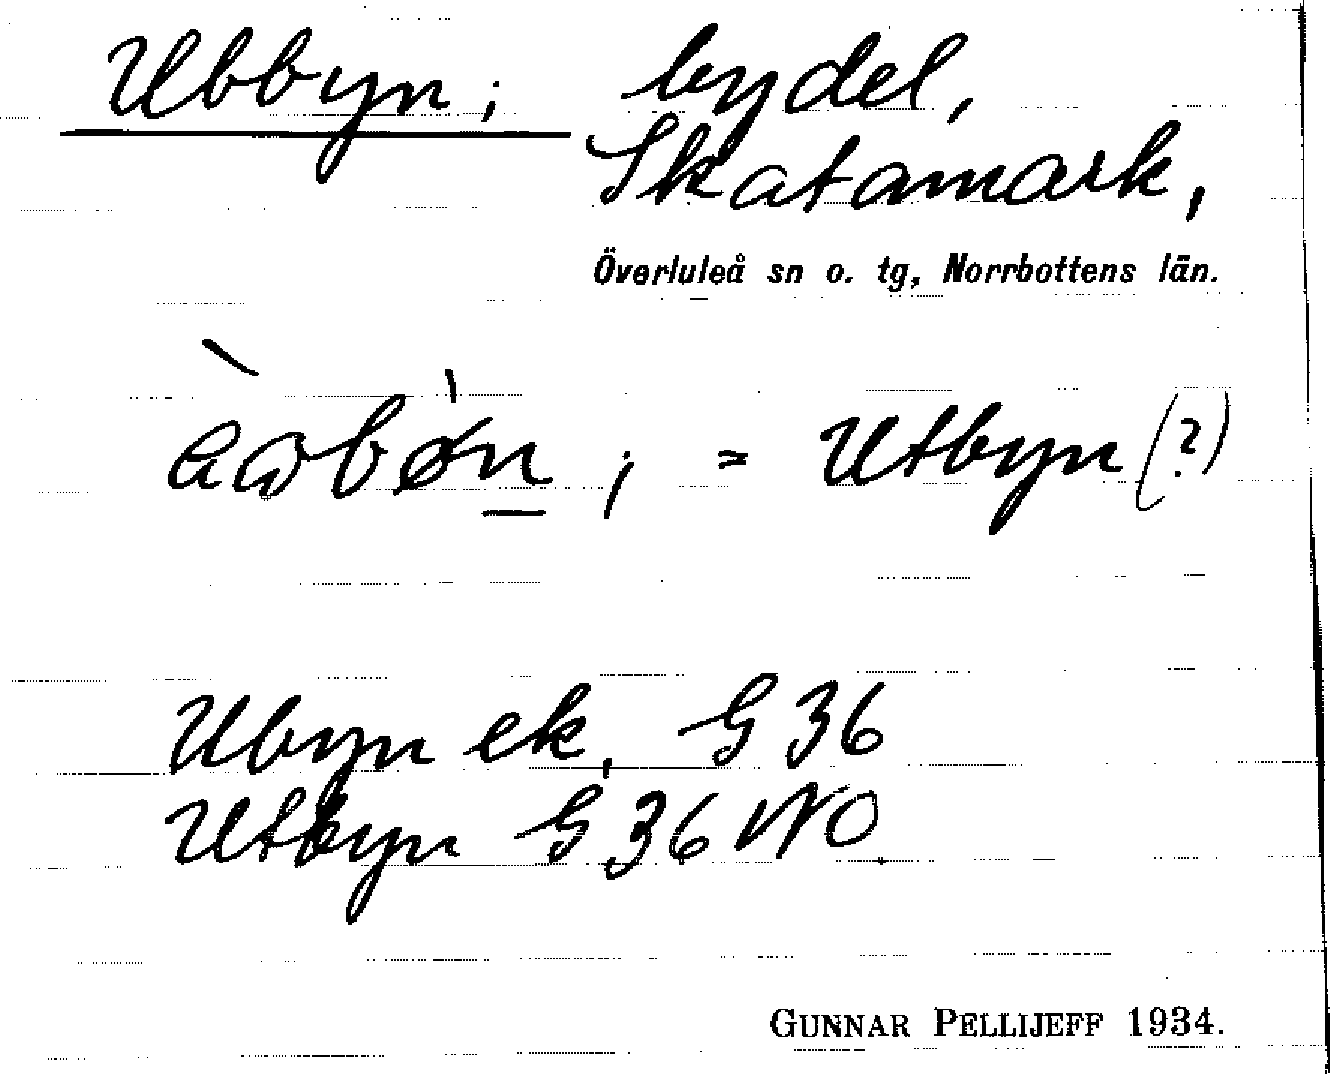 Ubbyn; bydel,
Skatamark,
Överluleå sn o. tg, Norrbottens län.
; = Utbyn (?)
Ubyn ek, G 36
Utbyn G 36 NO
GUNNAR PELLIJEFF 1934.